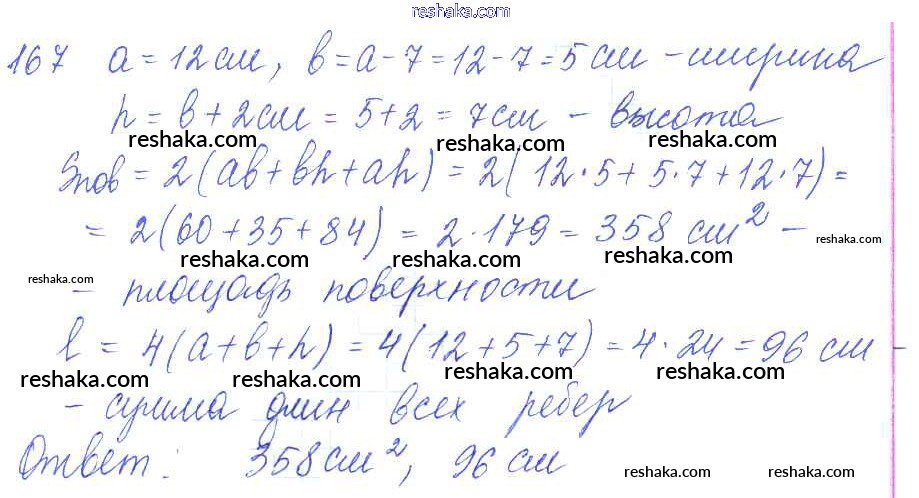 reshaka.com
167 a = 12 см, в = a - 7 = 12 - 7 = 5 см - ширина
h = в + 2 см = 5 + 2 = 7 см - высота
reshaka.com reshaka.com reshaka.com
Sпов = 2(aв + вh + ah) = 2(12·5 + 5·7 + 12·7) =
= 2(60 + 35 + 84) = 2·179 = 358 см² -
reshaka.com reshaka.com reshaka.com
reshaka.com
- площадь поверхности
l = 4(a + в + h) = 4(12 + 5 + 7) = 4·24 = 96 см -
reshaka.com reshaka.com reshaka.com reshaka.com
- сумма длин всех ребер
Ответ: 358 см², 96 см
reshaka.com reshaka.com